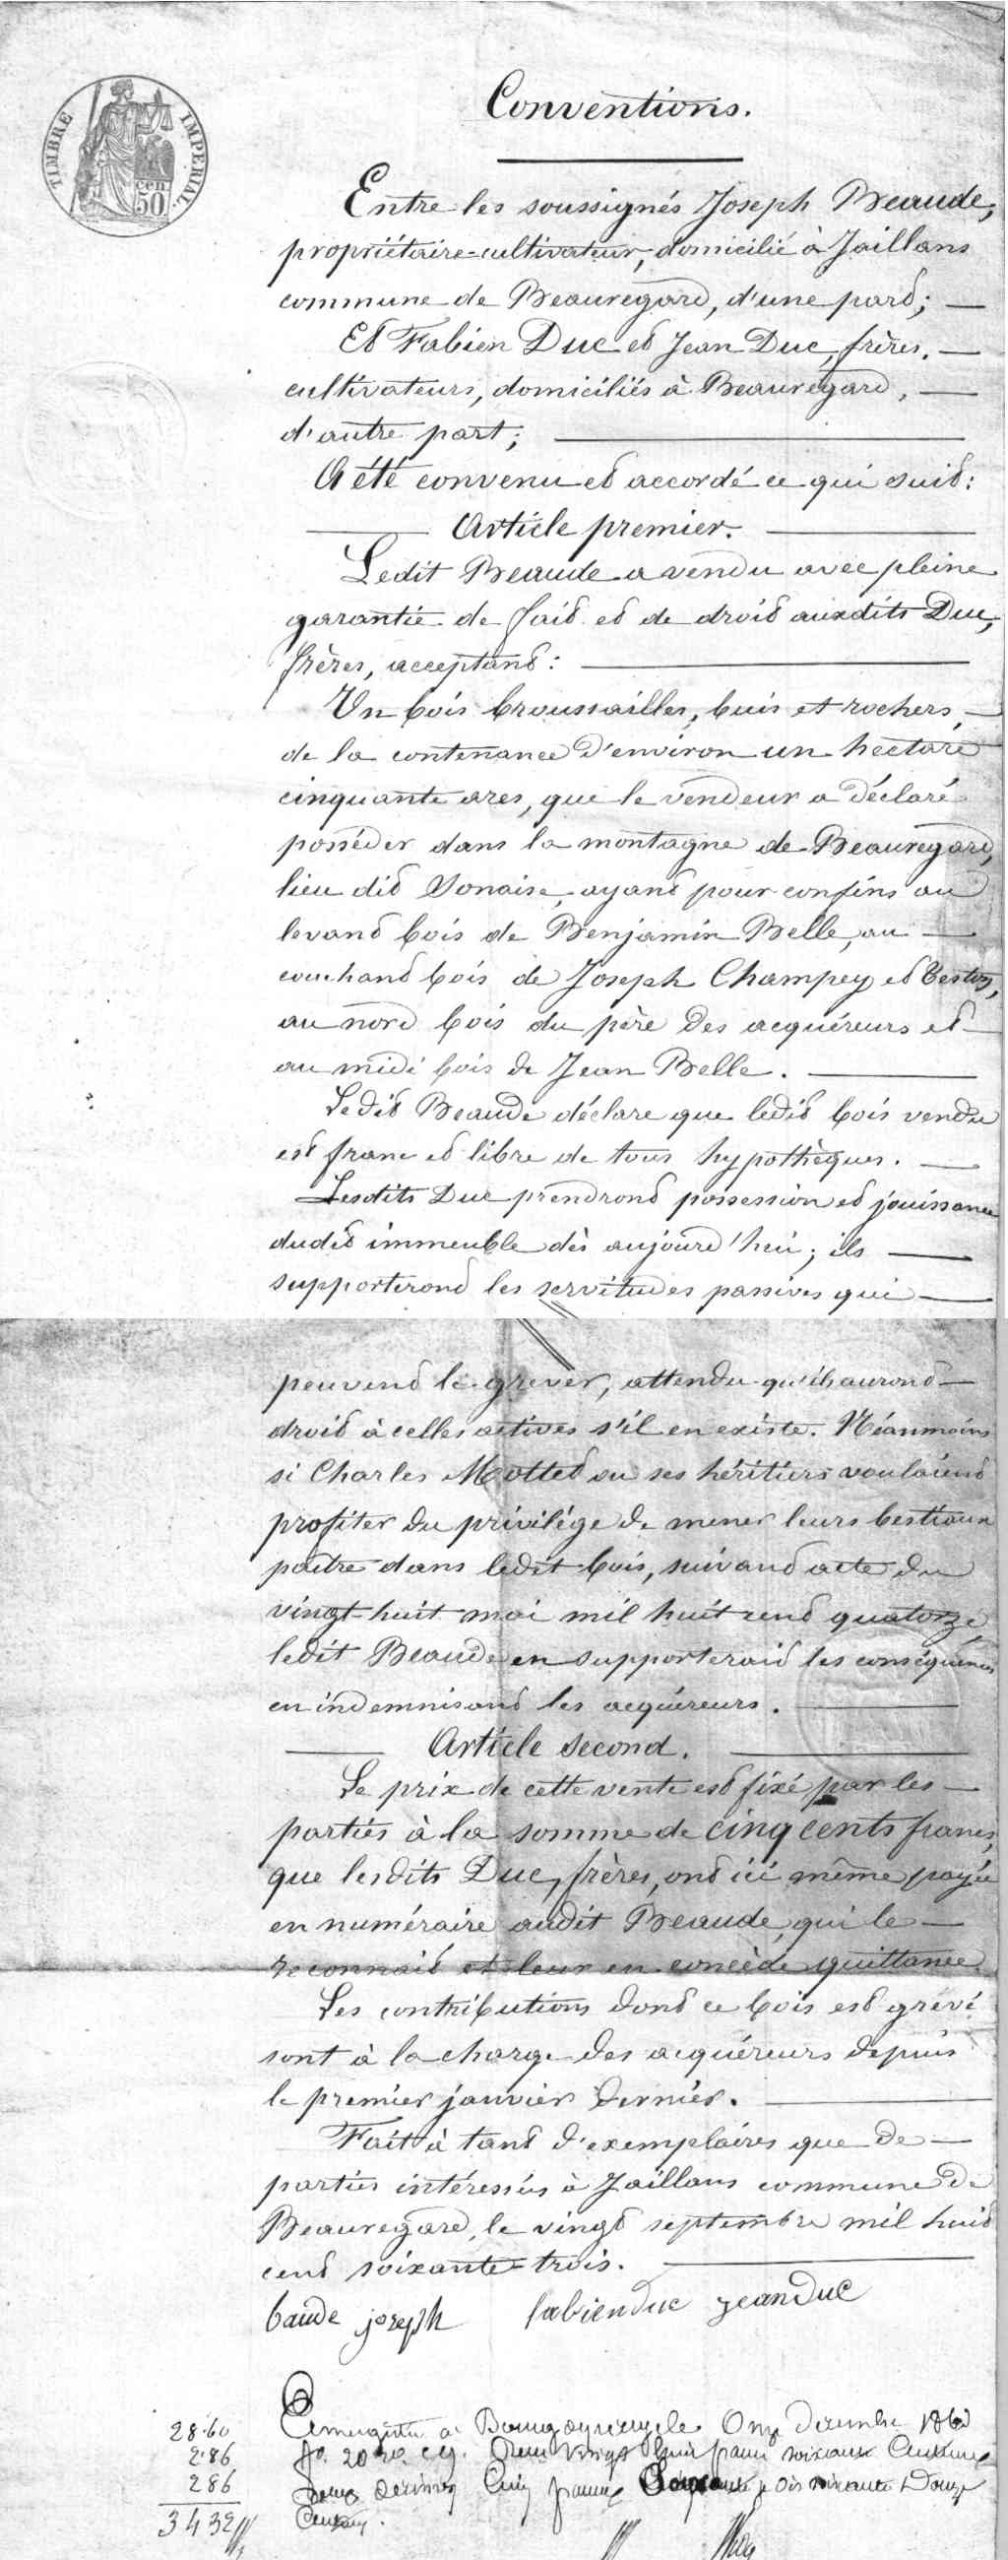 TIMBRE IMPERIAL
cen 50
Conventions.
Entre les soussignés Joseph Beaude,
propriétaire-cultivateur, domicilié à Jaillans
commune de Beauregard, d'une part;
Et Fabien Duc et Jean Duc, frères,
cultivateurs, domiciliés à Beauregard,
d'autre part;
A été convenu et accordé ce qui suit:
Article premier.
Ledit Beaude a vendu avec pleine
garantie de fait et de droit auxdits Duc,
frères, acceptant:
Un bois broussailles, buis et rochers,
de la contenance d'environ un hectare
cinquante ares, que le vendeur a déclaré
posséder dans la montagne de Beauregard,
lieu dit Sonaise, ayant pour confins au
levant bois de Benjamin Belle, au
couchant bois de Joseph Champey et Teston,
au nord bois du père des acquéreurs et
au midi bois de Jean Belle.
Ledit Beaude déclare que ledit bois vendu
est franc et libre de tous hypothèques.
Lesdits Duc prendront possession et jouissance
dudit immeuble dès aujourd'hui; ils
supporteront les servitudes passives qui
peuvent le grever, attendu qu'ils auront
droit à celles actives s'il en existe. Néanmoins
si Charles Mottet ou ses héritiers voulaient
profiter du privilége de mener leurs bestiaux
paître dans ledit bois, suivant acte du
vingt-huit mai mil huit cent quatorze
ledit Beaude en supporterait les conséquences
en indemnisant les acquéreurs.
Article second.
Le prix de cette vente est fixé par les
parties à la somme de cinq cents francs,
que lesdits Duc, frères, ont ici même payée
en numéraire audit Beaude, qui le
reconnait et leur en concède quittance.
Les contributions dont ce bois est grevé
sont à la charge des acquéreurs depuis
le premier janvier dernier.
Fait à tant d'exemplaires que de
parties intéressées à Jaillans commune de
Beauregard, le vingt septembre mil huit
cent soixante-trois.
baude joseph fabien duc jean duc
28.60
2.86
2 86
34 32
Enregistré à Bourg le Onze décembre
fo. 20 vo. c. 9. Reçu vingt huit francs soixante Centimes
décimes Cinq francs soixante Douze
Centimes.